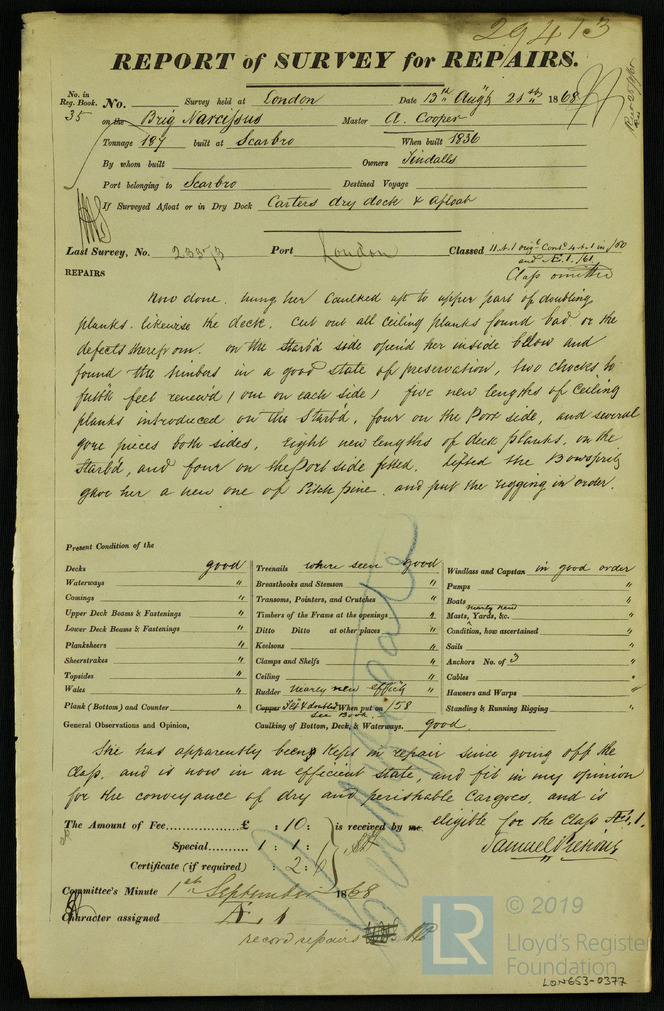 29413
REPORT of SURVEY for REPAIRS.
No. in Reg. Book. No. Survey held at London Date 13th Augt 21st 1868
35 on the Brig Narcissus Master A. Cooper
Tonnage 187 built at Scarbro When built 1836
By whom built Owners Tindalls
Port belonging to Scarbro Destined Voyage
If Surveyed Afloat or in Dry Dock Carters dry dock & afloat
Last Survey, No. Port London Classed 11.A.1 orig. Cont. 4.A.1 in /50
and Æ.1. /61
REPAIRS Class omitted
Now done. hung her Caulked aft to upper part of doubling
planks. likewise the deck. Cut out all Ceiling planks found bad or the
defects therefrom. on the Starb'd side open'd her inside below and
found the timbers in a good state of preservation, two chocks to
feet renew'd (one on each side) five new lengths of Ceiling
planks introduced on the Starb'd, four on the Port side, and several
gore pieces both sides, Eight new lengths of deck planks, on the
Starb'd, and four on the Port side fitted. Lifted the Bowsprit
gave her a new one of Pitch pine. and put the rigging in order.
Present Condition of the
Decks good
Waterways "
Comings "
Upper Deck Beams & Fastenings "
Lower Deck Beams & Fastenings "
Planksheers "
Sheerstrakes "
Topsides "
Wales "
Plank (Bottom) and Counter "
Treenails where seen good
Breasthooks and Stemson "
Transoms, Pointers, and Crutches "
Timbers of the Frame at the openings "
Ditto Ditto at other places "
Keelsons "
Clamps and Shelfs "
Ceiling "
Rudder nearly new effici'y "
Copper Felt & doubled When put on /58
see Book.
Caulking of Bottom, Deck, & Waterways. good
Windlass and Capstan in good order
Pumps "
Boats "
nearly new
Masts, Yards, &c. "
Condition, how ascertained "
Sails "
Anchors No. of 3 "
Cables "
Hawsers and Warps "
Standing & Running Rigging "
General Observations and Opinion,
She has apparently been kept in repair since going off the
Class, and is now in an efficient state, and fit in my opinion
for the conveyance of dry and perishable Cargoes, and is
eligible for the Class Æ.1.
The Amount of Fee £ : 10 : is received by me.
Special 1 : 1 :
Certificate (if required) : 2 : 6
Samuel Pretious
Committee's Minute 1st September 1868
Character assigned Æ.1
record repairs
© 2019
LR
Lloyd's Register
Foundation
LON653-0377